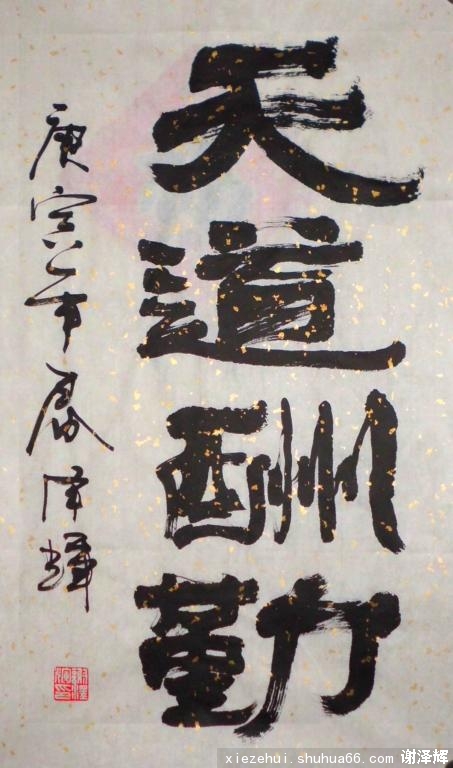 天道酬勤
庚寅年泽辉
xiezehui.shuhua66.com 谢泽辉